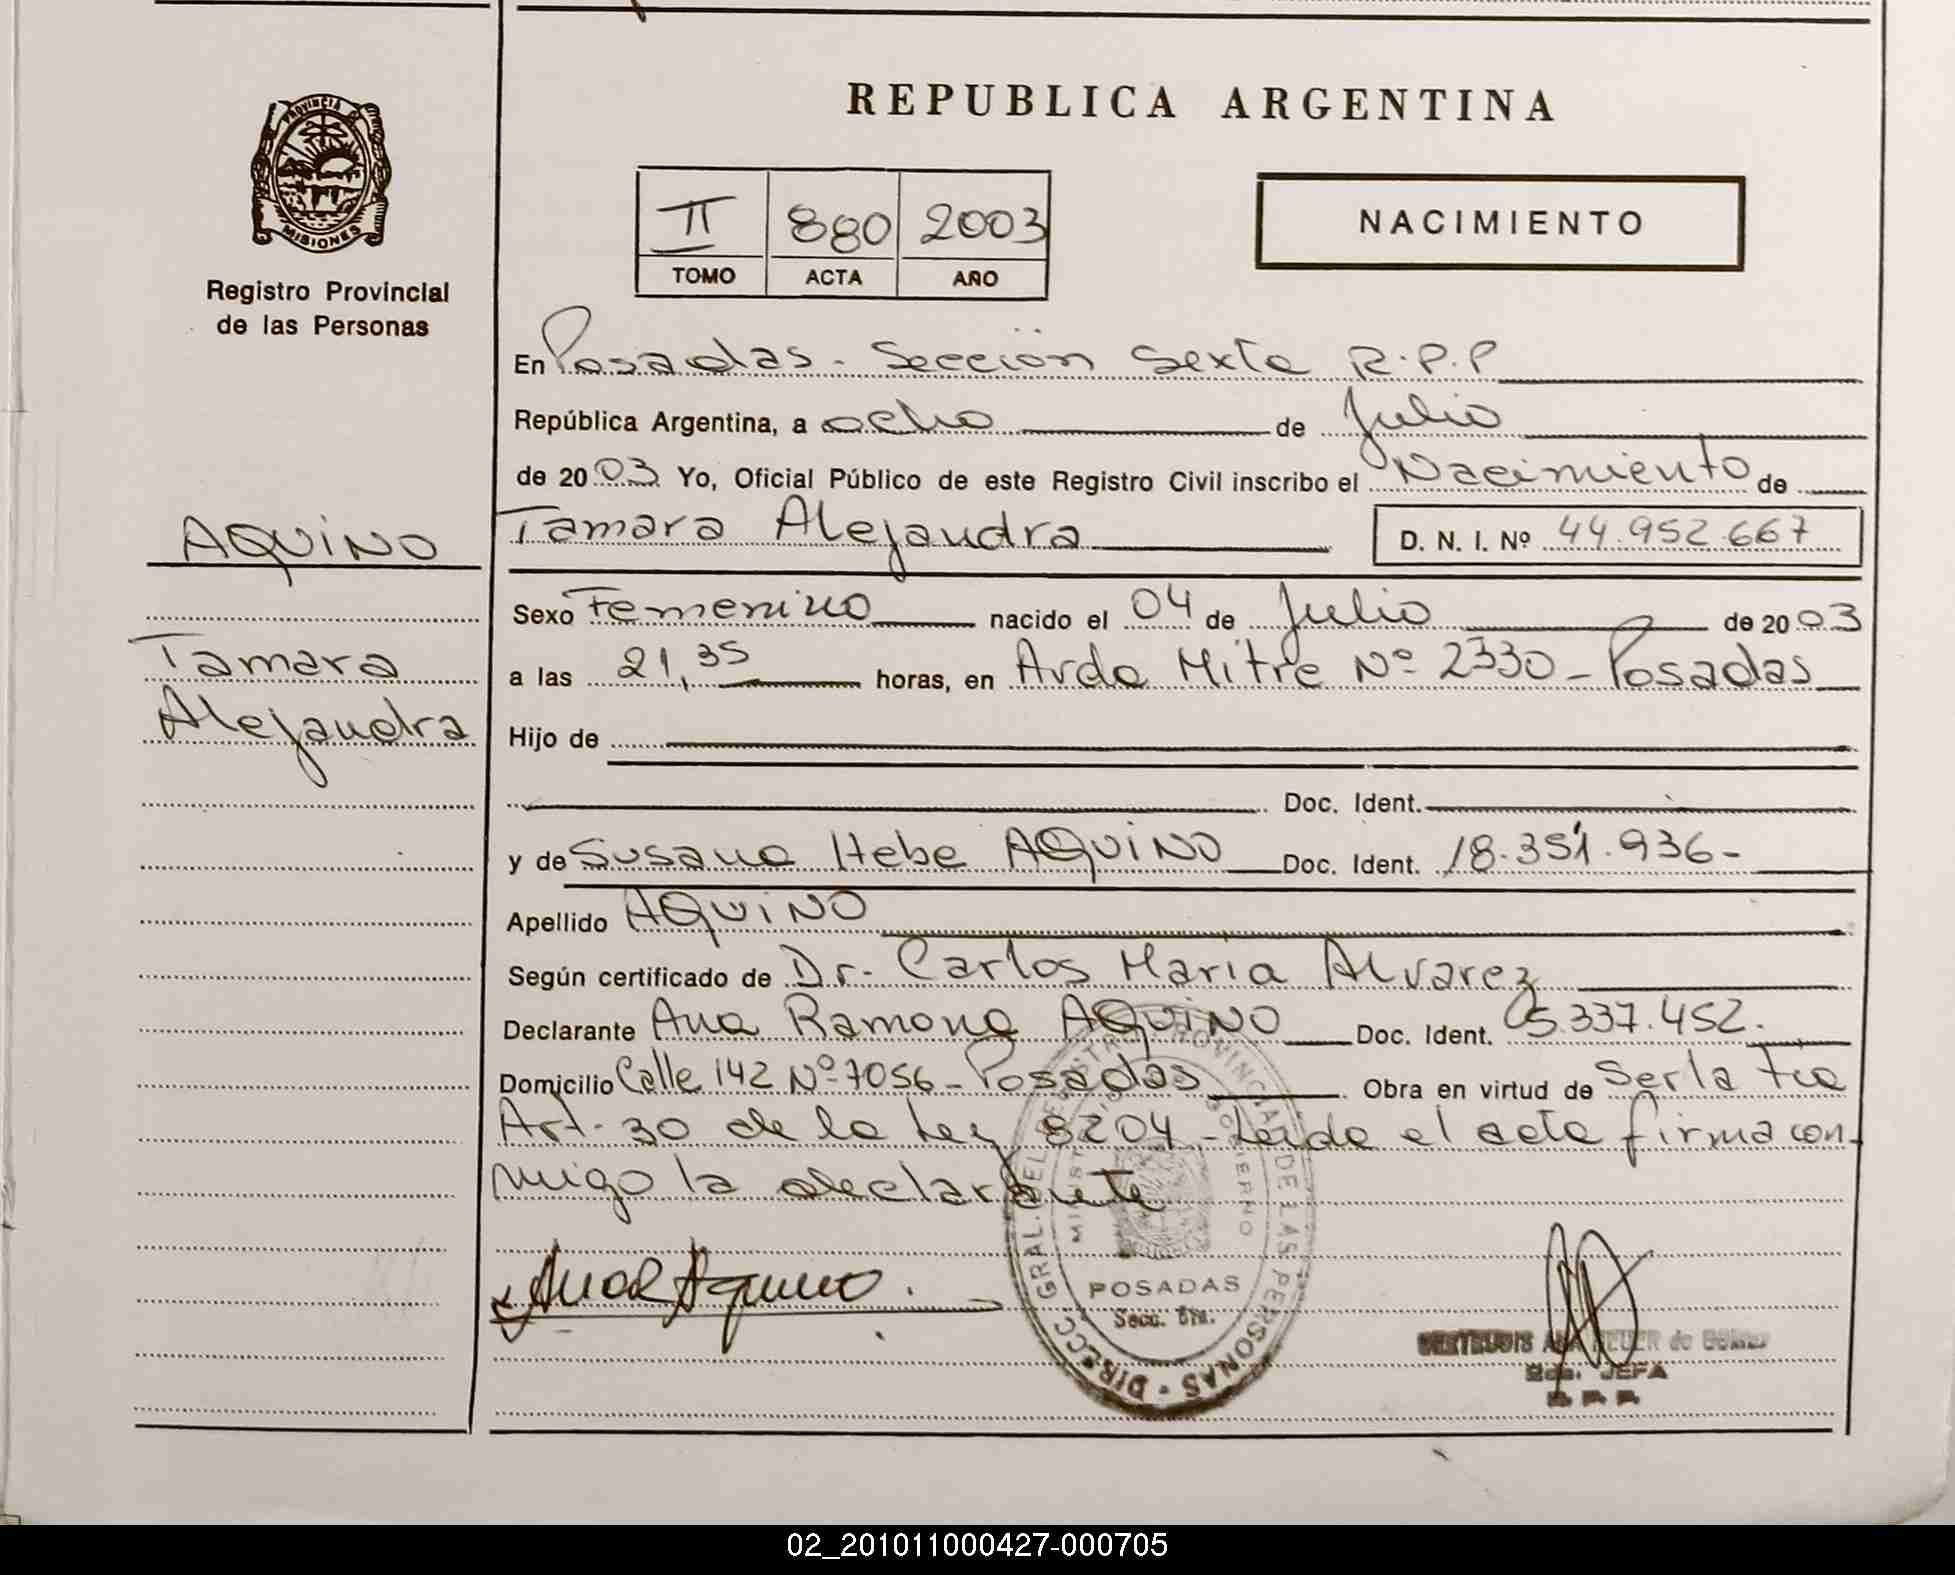 REPUBLICA ARGENTINA
PROVINCIA
MISIONES
Registro Provincial
de las Personas
II 880 2003
TOMO ACTA AÑO
NACIMIENTO
En Posadas - Sección Sexta R.P.P
República Argentina, a ocho de Julio
de 2003 Yo, Oficial Público de este Registro Civil inscribo el Nacimiento de
AQUINO
Tamara Alejandra D. N. I. Nº 44.952.667
Sexo Femenino nacido el 04 de Julio de 2003
Tamara
a las 21,35 horas, en Avda Mitre Nº 2330 - Posadas
Alejandra
Hijo de
Doc. Ident.
y de Susana Hebe AQUINO Doc. Ident. 18.351.936-
Apellido AQUINO
Según certificado de Dr. Carlos Maria Alvarez
Declarante Ana Ramona AQUINO Doc. Ident. 5.337.452.
Domicilio Calle 142 Nº 7056 - Posadas Obra en virtud de Ser la Tia
Art. 30 de la Ley 8204 - Leida el acta firma con
migo la declarante
Ana R Aquino.
DIRECC. GRAL. DEL REGISTRO PROVINCIAL DE LAS PERSONAS
MINISTERIO GOBIERNO
POSADAS
Secc. 6ta.
JEFA
02_201011000427-000705